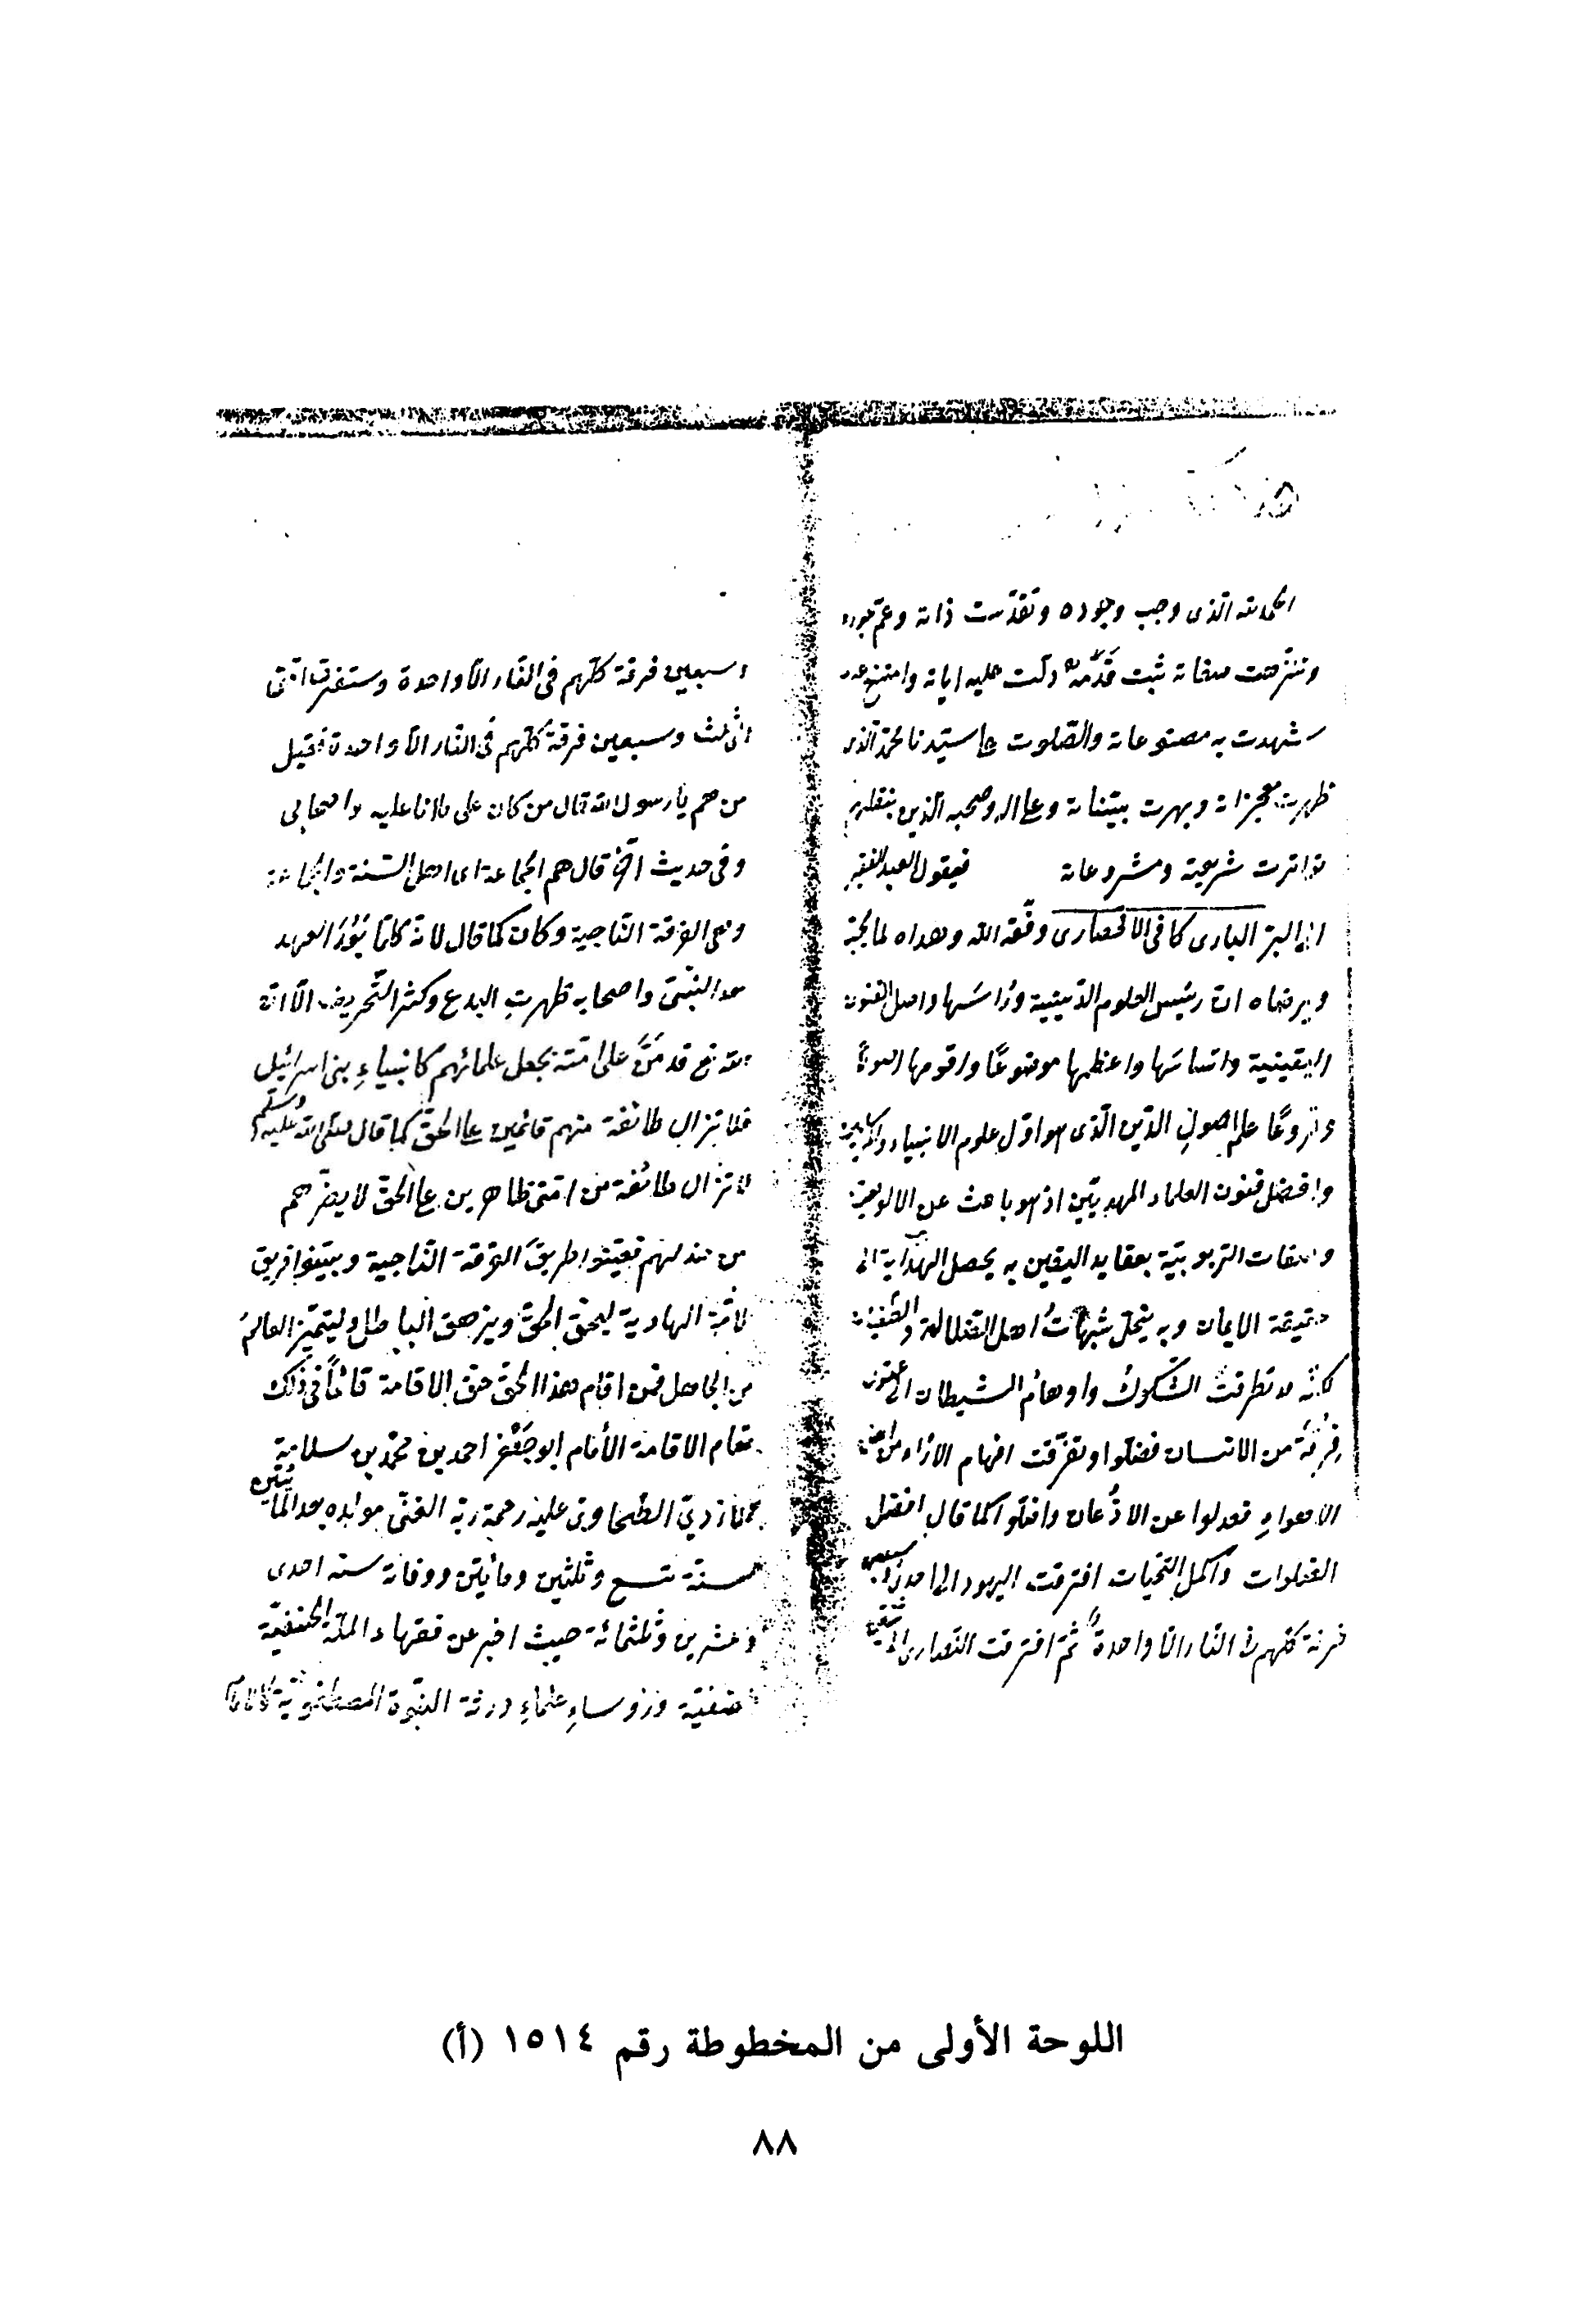 الحمد لله الذى وجب وجوده وتقدست ذاته وعم جوده
وتنزهت صفاته ثبت قدمه دلت عليه اياته وامتنع عدمه
شهدت به مصنوعاته والصلوت على سيدنا محمد الذى
ظهرت معجزاته وبهرت بيناته وعلى اله وصحبه الذين بنقلهم
تواترت شريعته ومشروعاته فيقول العبد الفقير
الى البر البارى كافى الاقحصارى وفقه الله وهداه لما يحبه
ويرضاه ان رئيس العلوم الدينية وراسها واصل الفنون
اليقينية واساسها واعظمها موضوعا واقومها اصولا
وفروعا علم اصول الدين الذى هو اول علوم الانبياء والمرسلين
وافضل فنون العلماء المهديين اذ هو باحث عن الالوهية
والصفات الربوبية بعقايد اليقين به يحصل الهداية الى
حقيقة الايمان وبه ينحل شبهات اهل الضلالة والطغيان
كانه لا تطرقت الشكوك واوهام الشيطان الى عقول
فرقة من الانسان فضلوا وتفرقت افهام الاراء من اهل
الاهواء فعدلوا عن الاذعان واضلوا كما قال افضل
الصلوات واكمل التحيات افترقت اليهود الى احدى وسبعين
فرقة كلهم فى النار الا واحدة ثم افترقت النصارى الى ثنتين
وسبعين فرقة كلهم فى النار الا واحدة وستفترق امتى
الى ثلث وسبعين فرقة كلهم فى النار الا واحدة فقيل
من هم يا رسول الله قال من كان على ما انا عليه واصحابى
وفى حديث اخر قال هم الجماعة اى اهل السنة والجماعة
وهى الفرقة الناجية وكان كما قال لانه كلما بعد العهد
بعد النبى واصحابه ظهرت البدع وكثر التحريض الا ان
الله تع قد من على امته بجعل علمائهم كانبياء بنى اسرائيل
فلا تزال طائفة منهم قائمين على الحق كما قال صلى الله عليه وسلم
لا تزال طائفة من امتى ظاهرين على الحق لا يضرهم
من خذلهم فعينوا طريق الفرقة الناجية وبينوا فريق
الامة الهادية ليحق الحق ويزهق الباطل وليتميز العالم
من الجاهل فمن اقام هذا الحق حق الاقامة قائما فى ذلك
مقام الاقامة الأمام ابو جعفر احمد بن محمد بن سلامة
الازدى الطحاوى عليه رحمة ربه الغنى مولده بعد المائتين
سنة تسع وثلثين ومائتين ووفاته سنة احدى
وعشرين وثلثمائة حيث اخبر عن فقهاء الملة الحنفية
ورؤساء علماء ورثة النبوة المصطفوية
اللوحة الأولى من المخطوطة رقم ١٥١٤ (أ)
٨٨